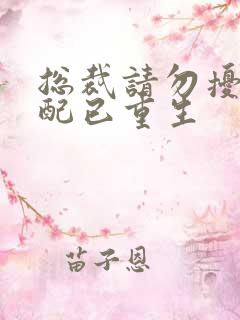 总裁請勿擾
配已重生
苗子恩